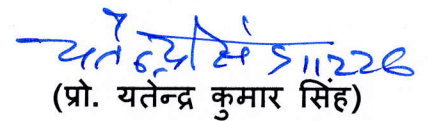 यतेन्द्र सिंह 511226
(प्रो. यतेन्द्र कुमार सिंह)